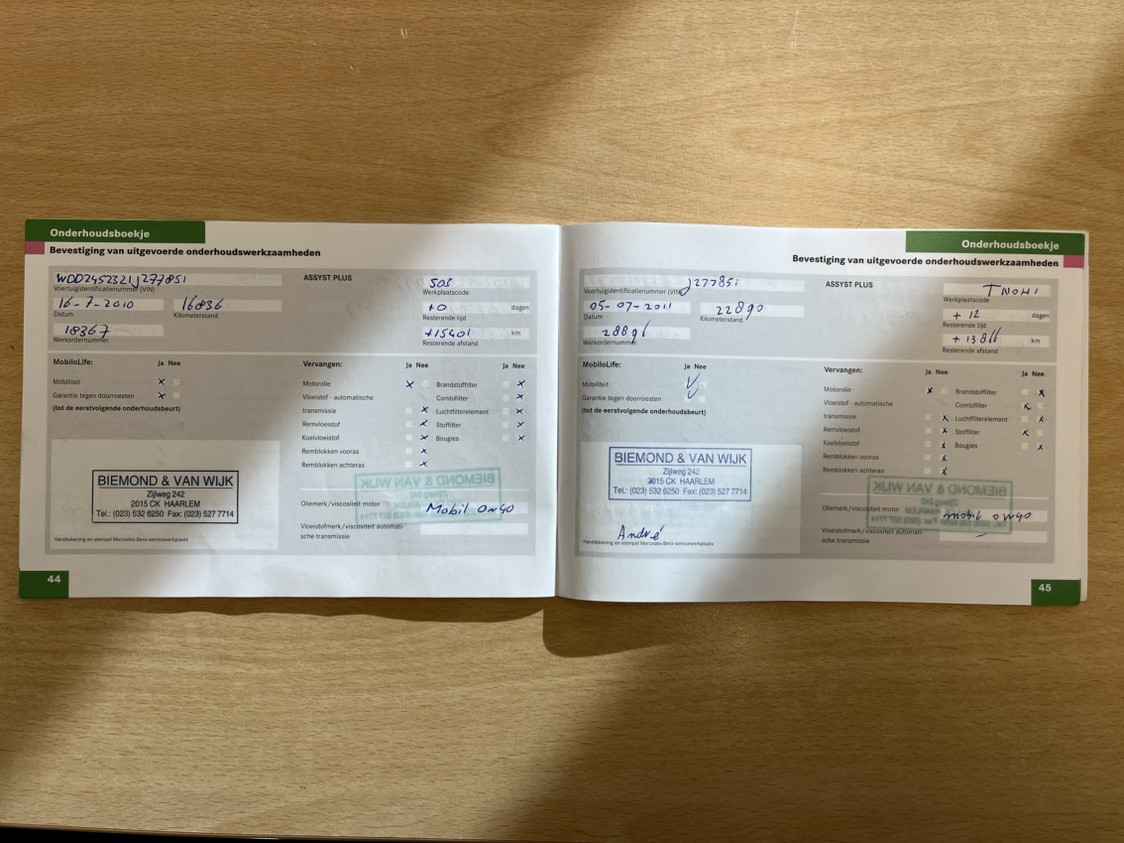 Onderhoudsboekje
Bevestiging van uitgevoerde onderhoudswerkzaamheden
WDD2452321J277851
Voertuigidentificatienummer (VIN)
16-7-2010 16836
Datum Kilometerstand
18367
Werkordernummer
ASSYST PLUS
Werkplaatscode
+0 dagen
Resterende tijd
+15401 km
Resterende afstand
MobiloLife: Ja Nee
Mobiliteit
Garantie tegen doorroesten
(tot de eerstvolgende onderhoudsbeurt)
Vervangen: Ja Nee Ja Nee
Motorolie Brandstoffilter
Vloeistof - automatische Combifilter
transmissie Luchtfilterelement
Remvloeistof Stoffilter
Koelvloeistof Bougies
Remblokken vooras
Remblokken achteras
BIEMOND & VAN WIJK
Zijlweg 242
2015 CK HAARLEM
Tel.: (023) 532 6250 Fax: (023) 527 7714
Handtekening en stempel Mercedes-Benz-servicewerkplaats
Oliemerk/viscositeit motor Mobil 0W40
Vloeistofmerk/viscositeit automati-
sche transmissie
44
Onderhoudsboekje
Bevestiging van uitgevoerde onderhoudswerkzaamheden
J277851
Voertuigidentificatienummer (VIN)
05-07-2011 22890
Datum Kilometerstand
Werkordernummer
ASSYST PLUS
Werkplaatscode
+ 12 dagen
Resterende tijd
km
Resterende afstand
MobiloLife: Ja Nee
Mobiliteit
Garantie tegen doorroesten
(tot de eerstvolgende onderhoudsbeurt)
Vervangen: Ja Nee Ja Nee
Motorolie Brandstoffilter
Vloeistof - automatische Combifilter
transmissie Luchtfilterelement
Remvloeistof Stoffilter
Koelvloeistof Bougies
Remblokken vooras
Remblokken achteras
BIEMOND & VAN WIJK
Zijlweg 242
2015 CK HAARLEM
Tel.: (023) 532 6250 Fax: (023) 527 7714
André
Handtekening en stempel Mercedes-Benz-servicewerkplaats
Oliemerk/viscositeit motor mobil 0W40
Vloeistofmerk/viscositeit automati-
sche transmissie
45